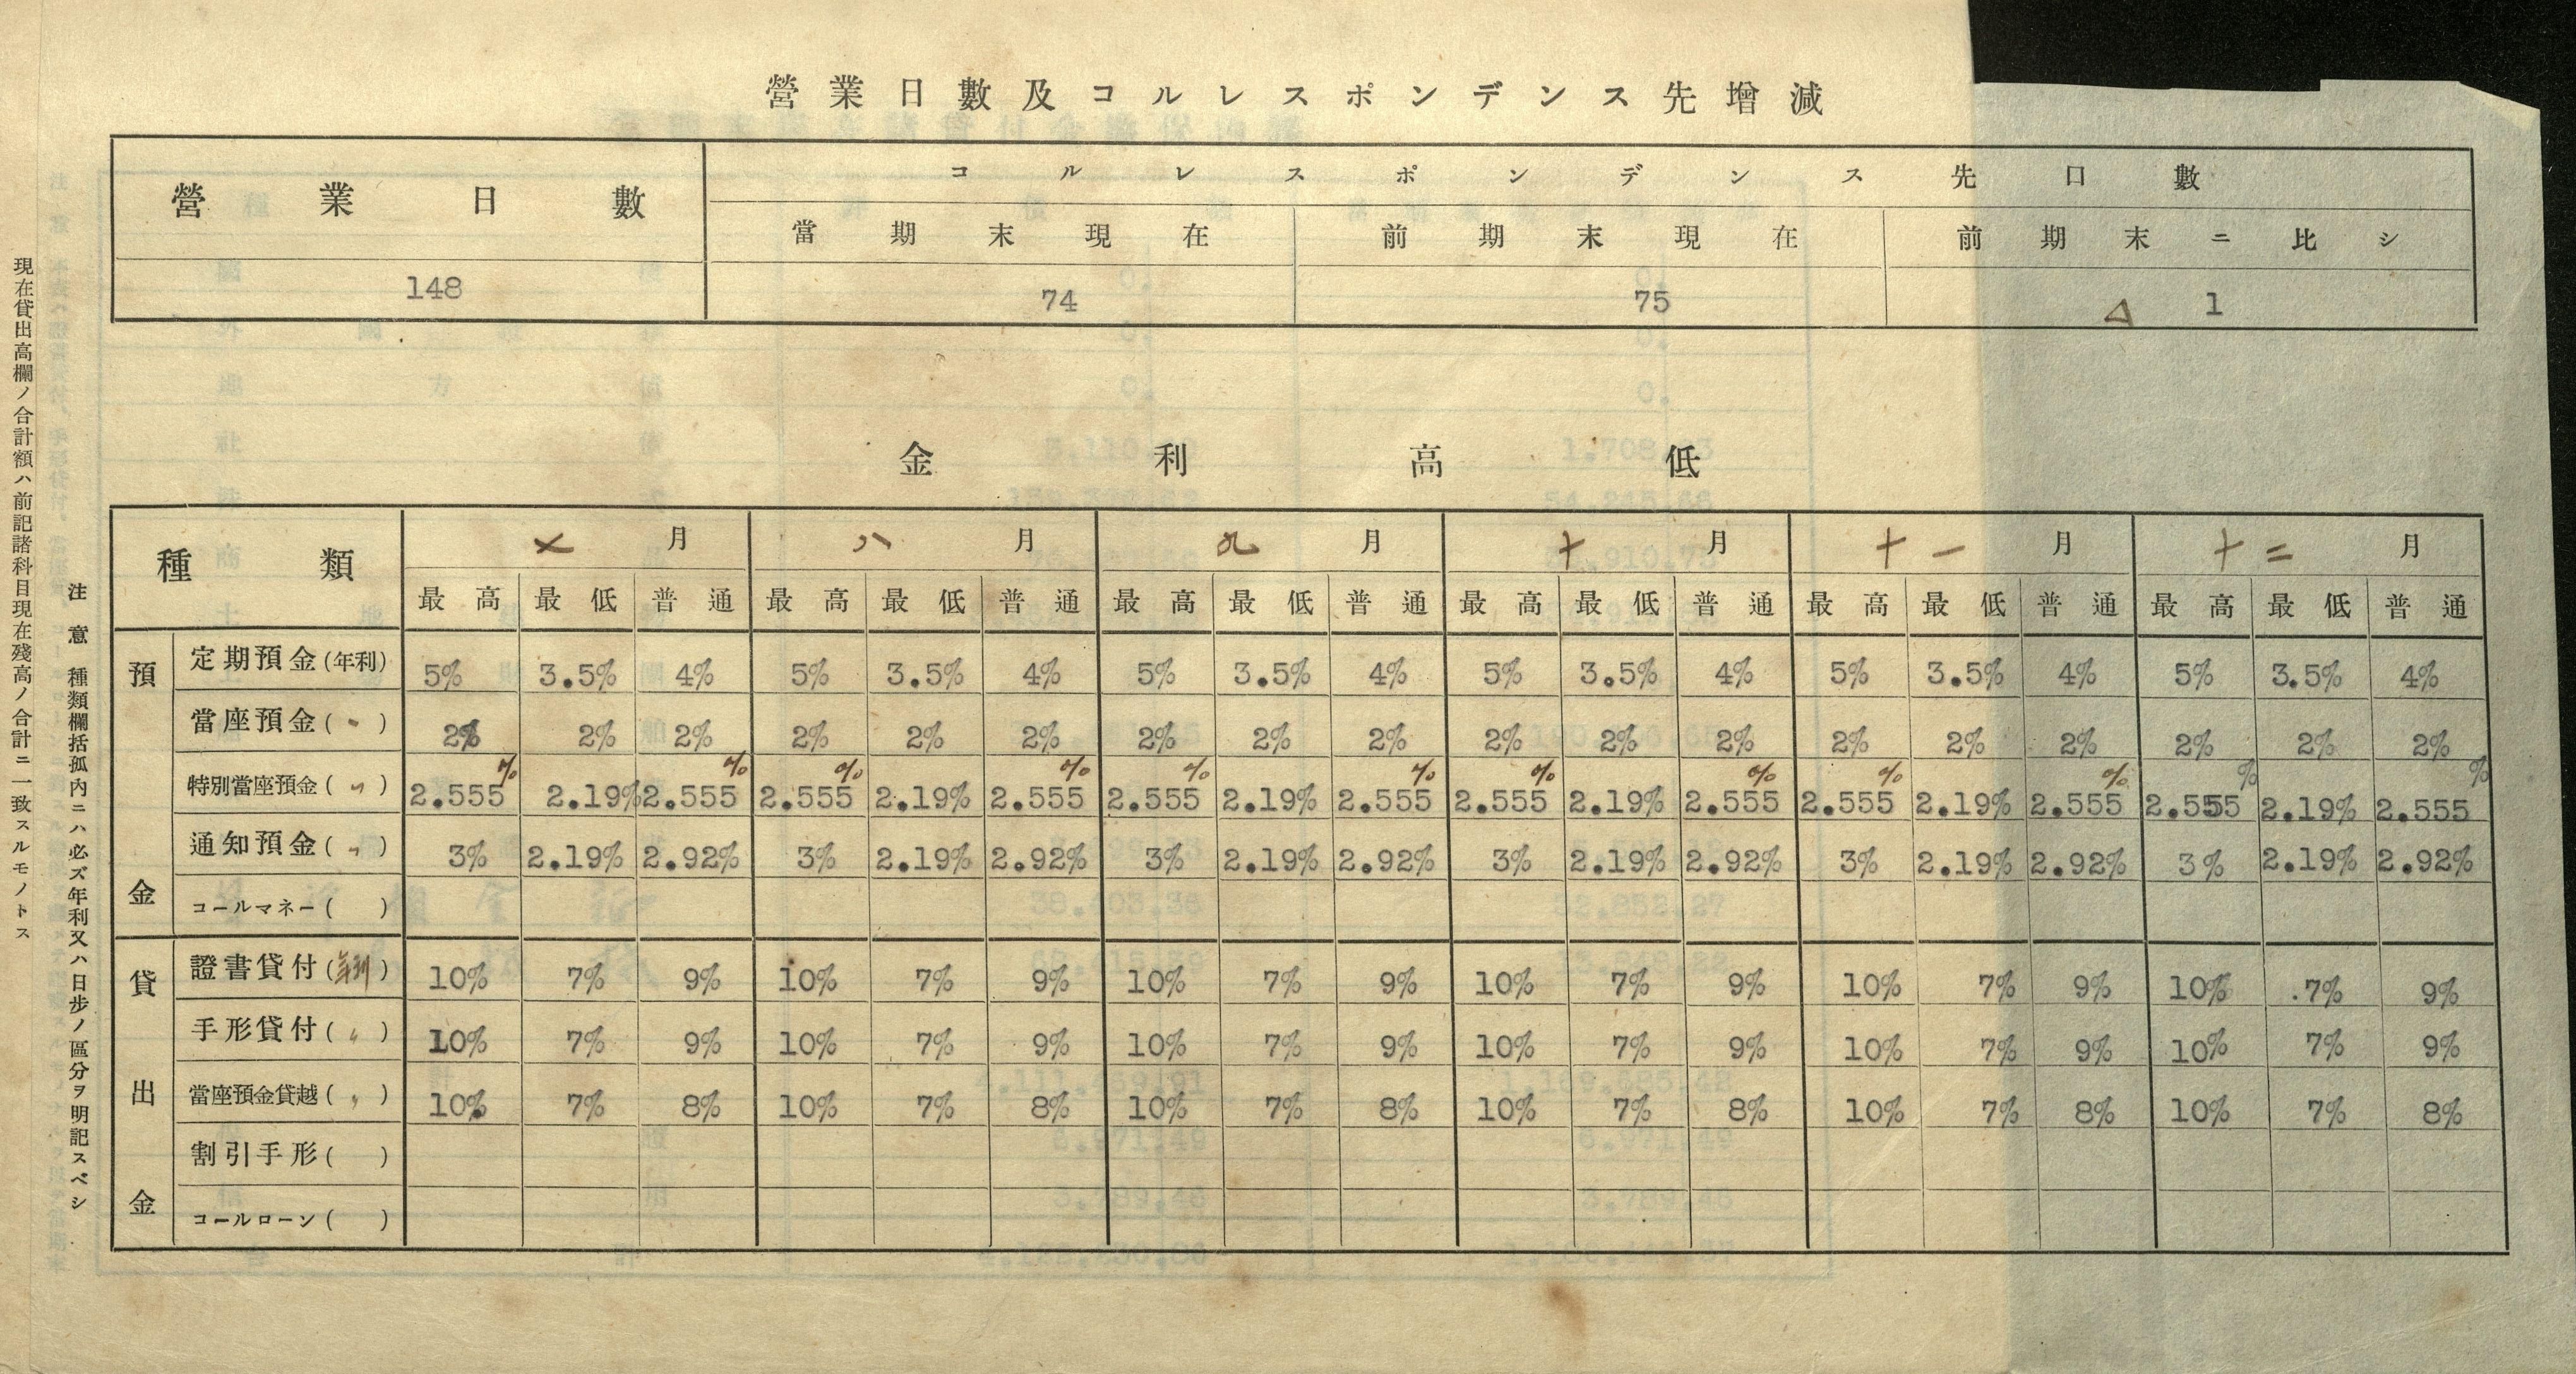 營業日數及コルレスポンデンス先增減
營業日數
コルレスポンデンス先口數
當期末現在 前期末現在 前期末ニ比シ
148 74 75 △ 1
金利高低
種類 七月 八月 九月 十月 十一月 十二月
最高 最低 普通 最高 最低 普通 最高 最低 普通 最高 最低 普通 最高 最低 普通 最高 最低 普通
預金
定期預金(年利) 5% 3.5% 4% 5% 3.5% 4% 5% 3.5% 4% 5% 3.5% 4% 5% 3.5% 4% 5% 3.5% 4%
當座預金(〃) 2% 2% 2% 2% 2% 2% 2% 2% 2% 2% 2% 2% 2% 2% 2% 2% 2% 2%
特別當座預金(〃) 2.555% 2.19% 2.555% 2.555% 2.19% 2.555% 2.555% 2.19% 2.555% 2.555% 2.19% 2.555% 2.555% 2.19% 2.555% 2.555% 2.19% 2.555%
通知預金(〃) 3% 2.19% 2.92% 3% 2.19% 2.92% 3% 2.19% 2.92% 3% 2.19% 2.92% 3% 2.19% 2.92% 3% 2.19% 2.92%
コールマネー( )
貸出金
證書貸付(年利) 10% 7% 9% 10% 7% 9% 10% 7% 9% 10% 7% 9% 10% 7% 9% 10% 7% 9%
手形貸付(〃) 10% 7% 9% 10% 7% 9% 10% 7% 9% 10% 7% 9% 10% 7% 9% 10% 7% 9%
當座預金貸越(〃) 10% 7% 8% 10% 7% 8% 10% 7% 8% 10% 7% 8% 10% 7% 8% 10% 7% 8%
割引手形( )
コールローン( )
注意 種類欄括孤内ニハ必ズ年利又ハ日步ノ區分ヲ明記スベシ
現在貸出高欄ノ合計額ハ前記諸科目現在殘高ノ合計ニ一致スルモノトス